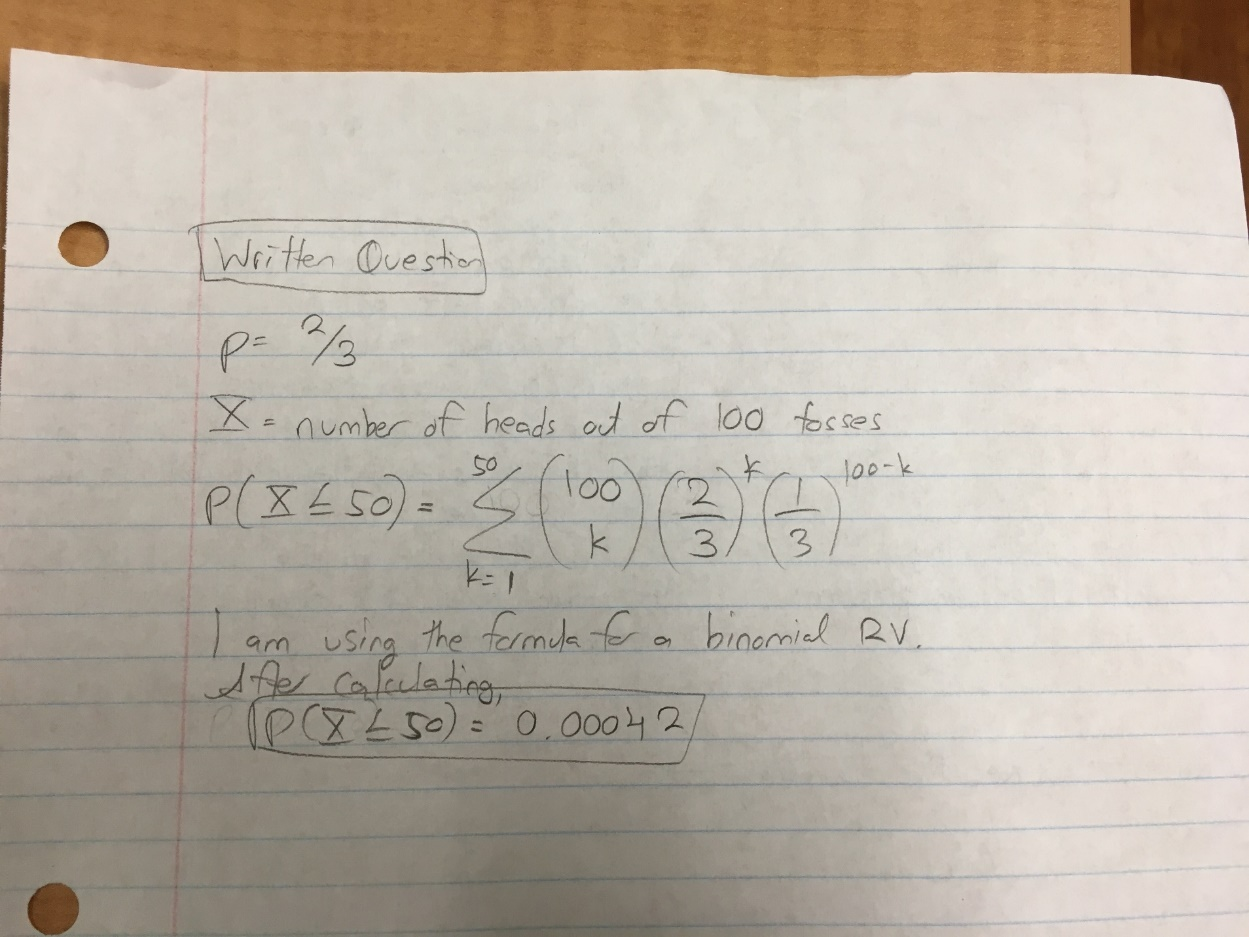 Written Question
p = 2/3
X = number of heads out of 100 tosses
P(X ≤ 50) = 50 ∑ k=1 (100 k) (2/3)^k (1/3)^100-k
I am using the formula for a binomial RV.
After calculating,
P(X ≤ 50) = 0.00042